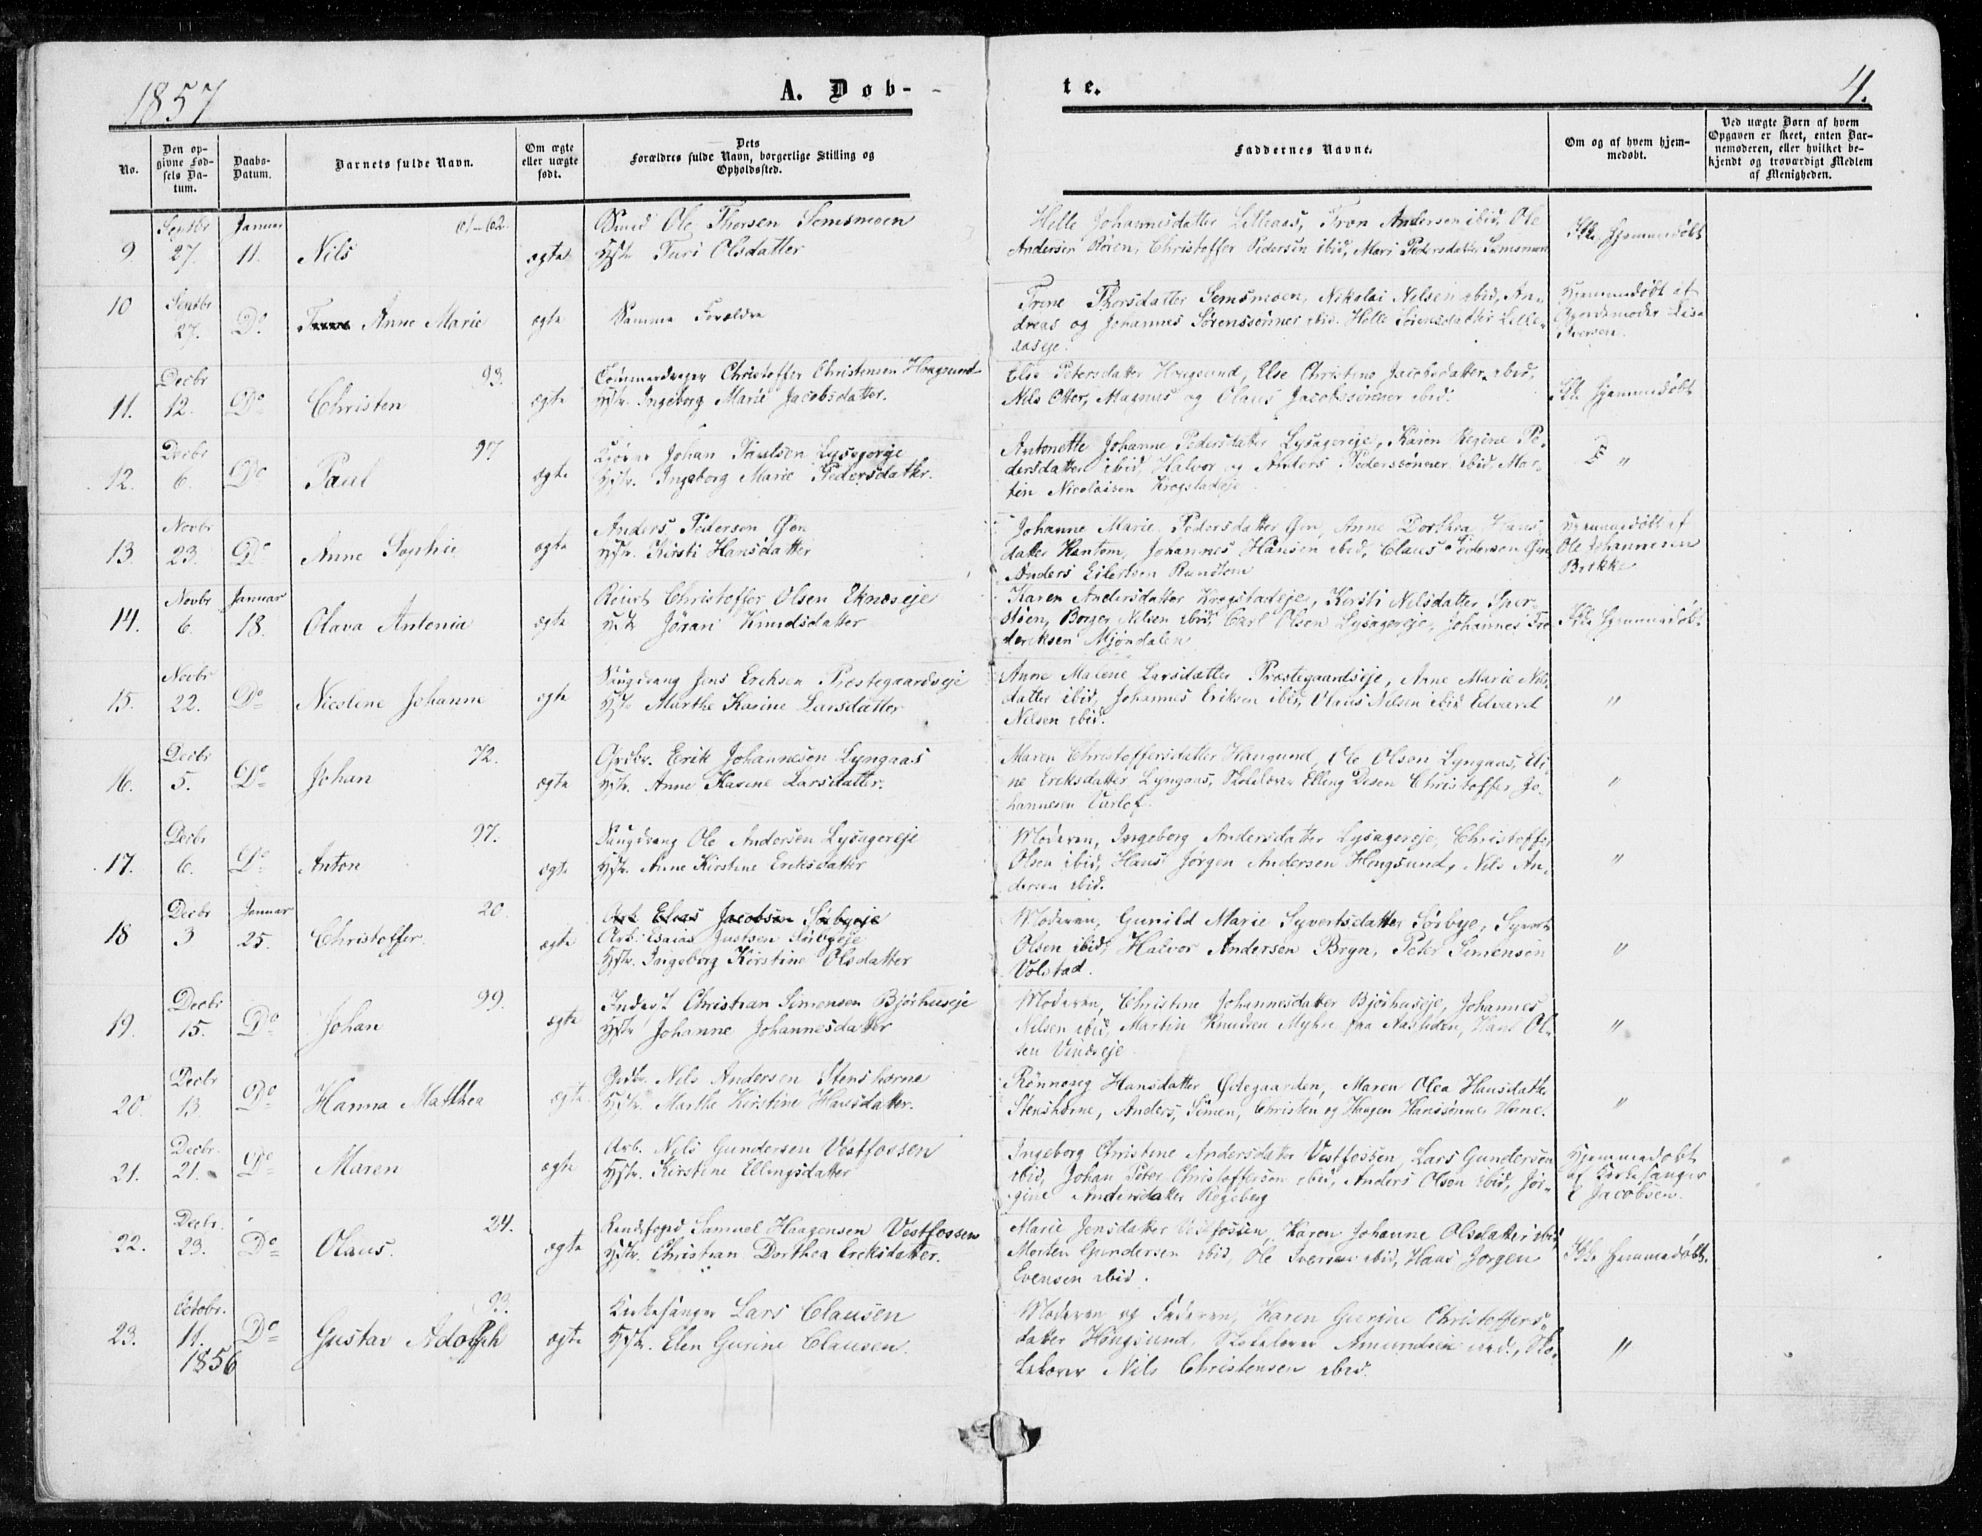 1857
A. Døb-
te.
4.
No.
Den opgivne Fødsels Datum.
Daabs-Datum.
Barnets fulde Navn.
Om ægte eller uægte født.
Dets Forældres fulde Navn, borgerlige Stilling og Opholdssted.
Faddernes Navne.
Om og af hvem hjemmedøbt.
Ved uægte Børn af hvem Opgaven er skeet, enten Barnemoderen, eller hvilket bekjendt og troværdigt Medlem af Menigheden.
Septbr Januar 61-62. Ole Thorsen Semsmoen
9 27. 11. Nils ægte Hstr. Turi Olsdatter
Helle Johannesdatter Lilleaas, Tron Andersen ibid, Ole
Andersen Røren, Christoffer Pedersen ibid, Mari Pedersdatter Semsmoen
Ikke hjemmedøbt
10 Septbr 27. Do Anne Marie ægte Samme Forældre
Trine Thorsdatter Semsmoen, Nikolai Nilsen ibid, An-
dreas og Johannes Sørenssønner ibid. Helle Sørensdatter Lille-
aaseje.
Hjemmedøbt af
Gjordemoder Lisa
Iversen.
Decbr 93. Christoffer Christensen Hougsund
11. 12. Do Christen ægte Hstr. Ingeborg Marie Jacobsdatter.
Elie Petersdatter Hougsund, Else Christine Jacobsdatter ibid,
Nils Otter, Magnus og Olaus Jacobssønner ibid.
Ikke hjemmedøbt
Decbr 97 Johan Paulsen Lysagereje
12. 6. Do Paul ægte Hstr. Ingeborg Marie Pedersdatter.
Antonette Johanne Pedersdatter Lysagereje, Karen Regine Pe-
dersdatter ibid, Halvor og Anders Pederssønner ibid, Mar-
tin Nicolaisen Krogstadeje
"
Novbr Anders Pedersen Øen
13. 23. Do Anne Sophie ægte Hstr. Kirsti Hansdatter
Johanne Marie Pedersdatter Øen, Anne Dorthea Hans-
datter Hantom, Johannes Hansen ibid, Claus Pedersen Øen
Anders Eilertsen Rundtom
Hjemmedøbt af
Ole Johannesen
Brekke
Novbr Januar Christoffer Olsen Eknæseje
14. 6. 18. Olava Antonia ægte Hstr Jøran Knudsdatter
Karen Andersdatter Krogstadeje, Kirsti Nilsdatter
Borger Nilsen ibid, Carl Olsen Lysagereje, Johannes Fre-
dericksen Mjøndalen
Ikke hjemmedøbt
Novbr Saugdreng Jens Eriksen Præstegaardseje
15. 22. Do Nicoline Johanne ægte Hstr Marthe Karine Larsdatter
Anne Malene Larsdatter Præstegaardseje, Anne Marie Nils-
datter ibid, Johannes Eriksen ibid, Olaus Nilsen ibid Edvard
Nilsen ibid.
"
Decbr 72. Grdbr. Erik Johannesen Lyngaas
16. 5. Do Johan ægte Hstr. Anne Karine Larsdatter.
Maren Christoffersdatter Hougsund, Ole Olsen Lyngaas, Eli-
ne Eriksdatter Lyngaas, Skolelærer Elling Olsen Christoffer Jo-
hannesen
"
Decbr 97. Saugdreng Ole Andersen Lysagereje
17. 6. Do Anton ægte Hstr. Anne Kirstine Eriksdatter
Moderen, Ingeborg Andersdatter Lysagereje, Christoffer
Olsen ibid, Hans Jørgen Andersen Hougsund, Nils An-
dersen ibid.
"
Decbr Januar 20. Arb. Elias Jacobsen Sørbyeje
18 3 25. Christoffer. ægte Arb. Esaias Justsen Sørbyeje
Hstr. Ingeborg Kirstine Olsdatter
Moderen, Gunild Marie Syvertsdatter Sørbye, Syvert
Olsen ibid, Halvor Andersen Bryn, Peter Simensen
Volstad.
"
Decbr 99. Inderst Christian Simensen Bjørhuseje
19. 15. Do Johan ægte Hstr Johanne Johannesdatter
Moderen, Christine Johannesdatter Bjørhuseje, Johannes
Nilsen ibid, Martin Knudsen Myhre paa Aasliden, Hans Ol-
sen
"
Decbr Grdbr. Nils Andersen Stenshorne
20. 13 Do Hanna Mathea ægte Hstr. Marthe Kirstine Hansdatter.
Rønnoug Hansdatter Ødegaarden, Maren Olea Hansdatter
Stenshorne, Anders, Simen, Christen og Haagen Hanssønner Horne.
"
Decbr. Arb. Nils Gundersen Vestfossen
21. 21. Do Maren ægte Hstr. Kirstine Ellingsdatter
Ingeborg Christine Andersdatter Vestfossen, Lars Gundersen
ibid, Johan Peter Christoffersen ibid, Anders Olsen ibid, Jør-
gine Andersdatter Rogeberg
Hjemmedøbt
af Kirkesanger
Jacobsen.
Decbr. 24. Samuel Haagensen Vestfossen
22. 23. Do Olaus. ægte Hstr. Christian Dorthea Eriksdatter.
Marie Jensdatter Vestfossen, Karen Johanne Olsdatter ibid,
Morten Gundersen ibid, Ole Iversen ibid, Hans Jørgen
Evensen ibid.
Ikke hjemmedøbt.
Octobr. 93. Kirkesanger Lars Clausen
23. 11. Do Gustav Adolph ægte Hstr. Elen Gurine Clausen.
1856
Moderen og Faderen, Karen Gurine Christoffers-
datter Hougsund, Skolelærer Amundsen ibid., Sko-
lelærer Nils Christensen ibid.
"